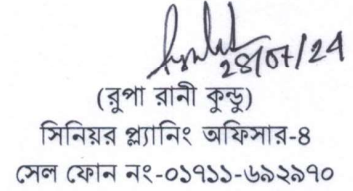 28/07/24
(রুপা রানী কুন্ডু)
সিনিয়র প্ল্যানিং অফিসার-৪
সেল ফোন নং-০১৭১১-৬৯২৯৭০